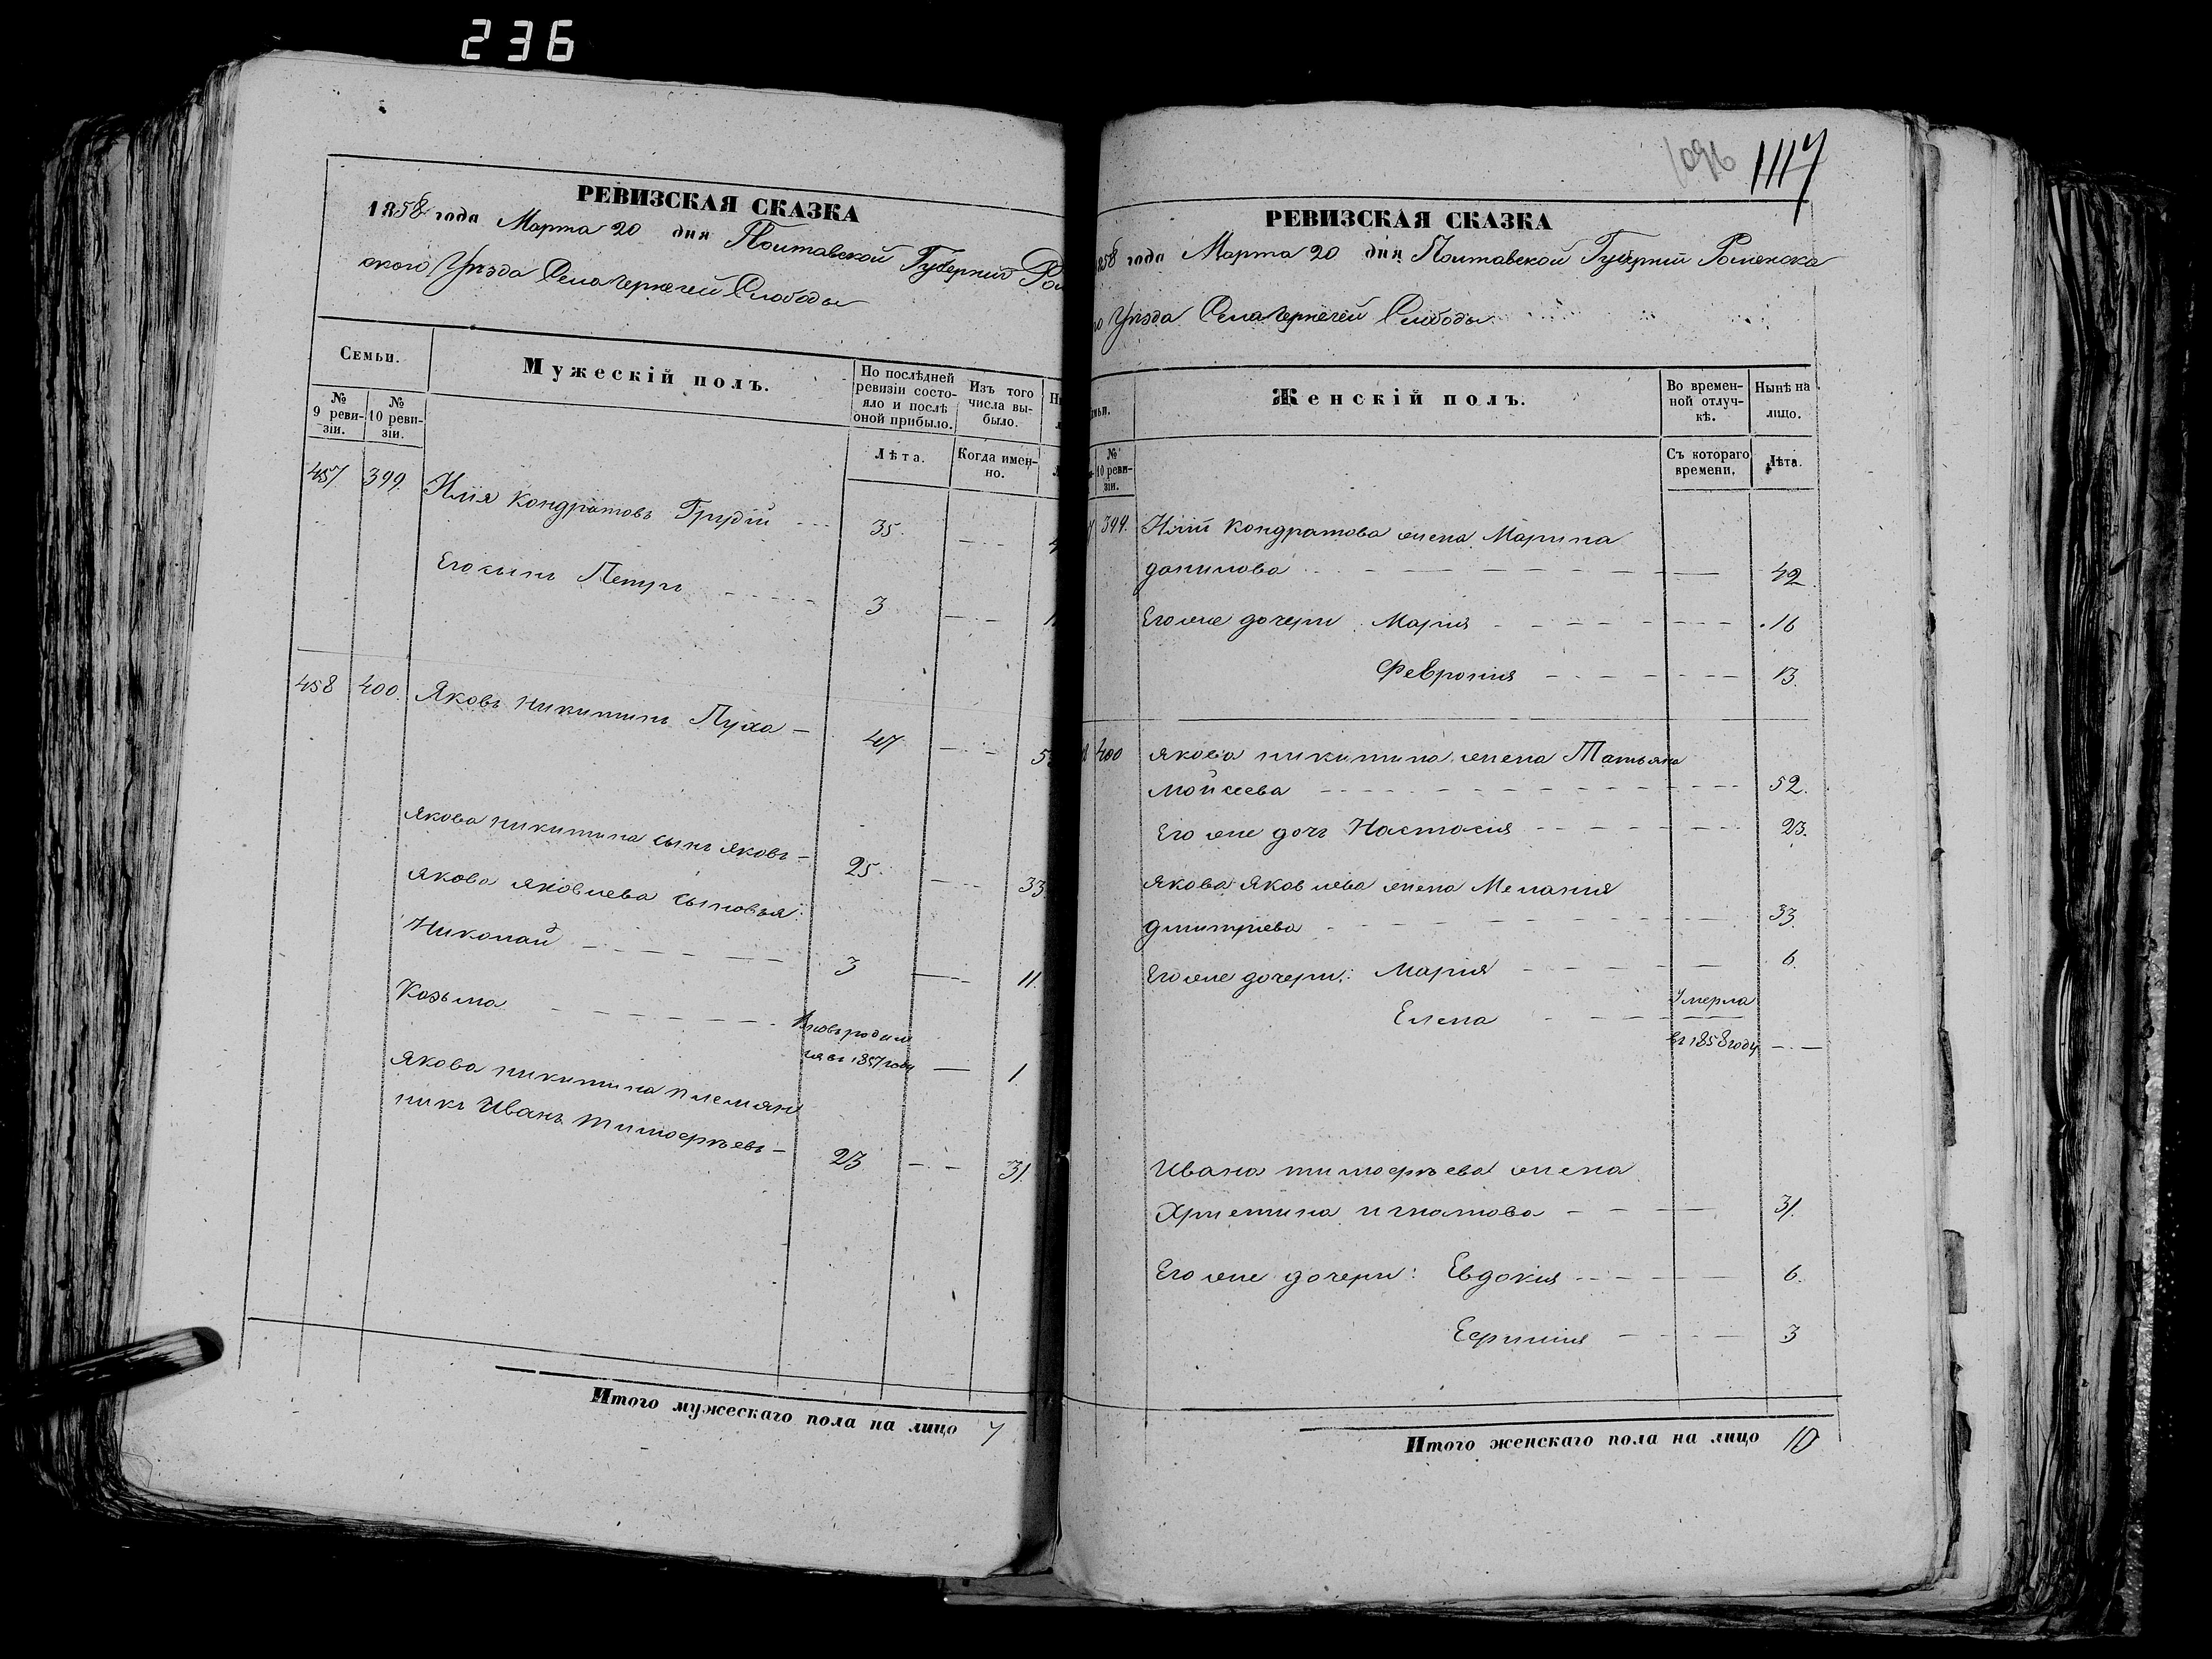 236
РЕВИЗСКАЯ СКАЗКА
1858 года Марта 20 дня Полтавской Губерніи Ром
енского Уѣзда Села Чернечей Слободы
Семьи.
Мужескій полъ.
По послѣдней ревизіи состояло и послѣ оной прибыло.
Изъ того числа выбыло.
№ 9 ревизіи.
№ 10 ревизіи.
Лѣта.
Когда именно.
457 399. Илія Кондратовъ Грудій 35.
Его сынъ Петръ 3
458 400. Яковъ Никитинъ Пуха 47 5
Якова Никитина сынъ Яковъ 25. 33
Якова Яковлева сыновья:
Николай 3 11.
Козьма Вновь родил
ся въ 1857 году 1
Якова Никитина племян
никъ Иванъ Тимофѣевъ 23 31.
Итого мужескаго пола на лицо 7
1096 1117
РЕВИЗСКАЯ СКАЗКА
1858 года Марта 20 дня Полтавской Губерніи Роменска
го Уѣзда Села Чернечей Слободы
Женскій полъ.
Во временной отлучкѣ.
Нынѣ на лицо.
№ 10 ревизіи.
Съ котораго времени.
Лѣта.
399. Иліи Кондратова жена Марина
Данилова 42
Его же дочери Марія 16
Февронія 13.
400 Якова Никитина жена Татьяна
Моисеева 52.
Его же дочь Настасія 23.
Якова Яковлева жена Меланія
Дмитріева 33.
Его же дочери: Марія 6.
Елена Умерла
въ 1858 году
Ивана Тимофѣева жена
Христина Игнатова 31.
Его же дочери: Евдокія 6.
Ефимія 3
Итого женскаго пола на лицо 10